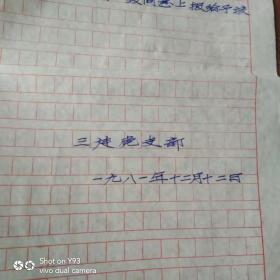 致同意上报给予议
三连党支部
一九八一年十二月十二日
SHOT ON Y93
vivo dual camera